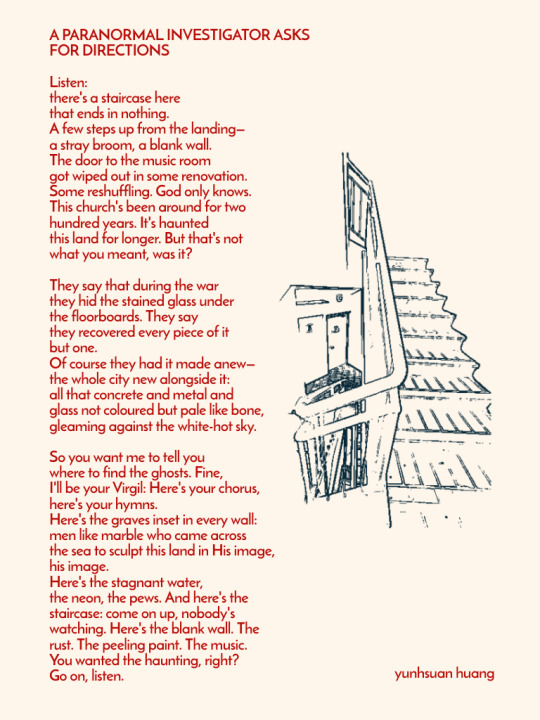 A PARANORMAL INVESTIGATOR ASKS
FOR DIRECTIONS
Listen:
there's a staircase here
that ends in nothing.
A few steps up from the landing—
a stray broom, a blank wall.
The door to the music room
got wiped out in some renovation.
Some reshuffling. God only knows.
This church's been around for two
hundred years. It's haunted
this land for longer. But that's not
what you meant, was it?
They say that during the war
they hid the stained glass under
the floorboards. They say
they recovered every piece of it
but one.
Of course they had it made anew—
the whole city new alongside it:
all that concrete and metal and
glass not coloured but pale like bone,
gleaming against the white-hot sky.
So you want me to tell you
where to find the ghosts. Fine,
I'll be your Virgil: Here's your chorus,
here's your hymns.
Here's the graves inset in every wall:
men like marble who came across
the sea to sculpt this land in His image,
his image.
Here's the stagnant water,
the neon, the pews. And here's the
staircase: come on up, nobody's
watching. Here's the blank wall. The
rust. The peeling paint. The music.
You wanted the haunting, right?
Go on, listen.
yunhsuan huang